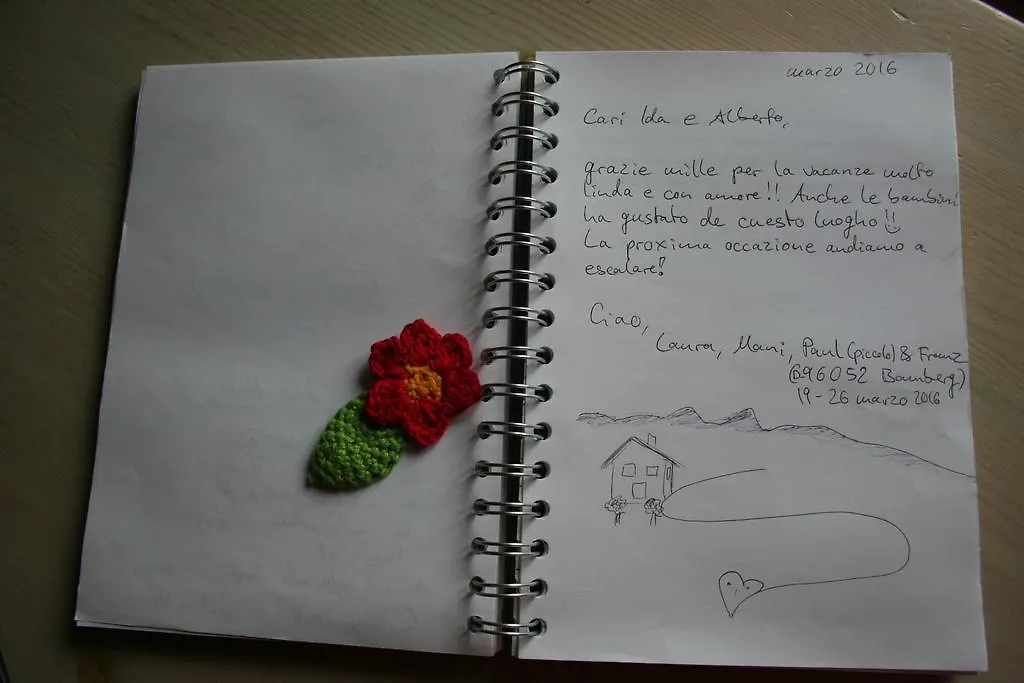 marzo 2016
Cari Ida e Alberto,
grazie mille per la vacanze molto
linda e con amore!! Anche le bambini
ha gustato de cuesto luogho!!
La proxima occazione andiamo a
escalare!
Ciao,
Laura, Mani, Paul (piccolo) & Franz
(96052 Bamberg)
19-26 marzo 2016